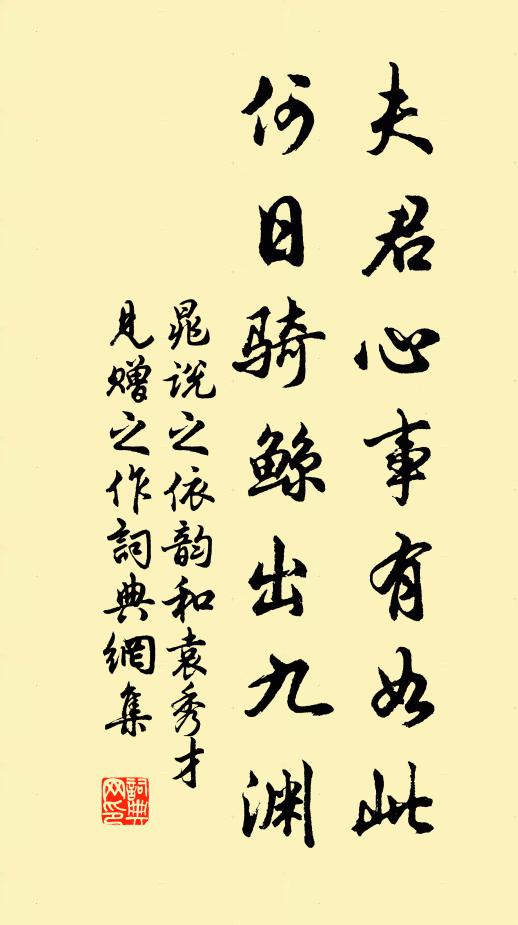 夫君心事有如此
何日骑鲸出九渊
晁说之依韵和袁秀才
见赠之作詞典網集
詞典
网印